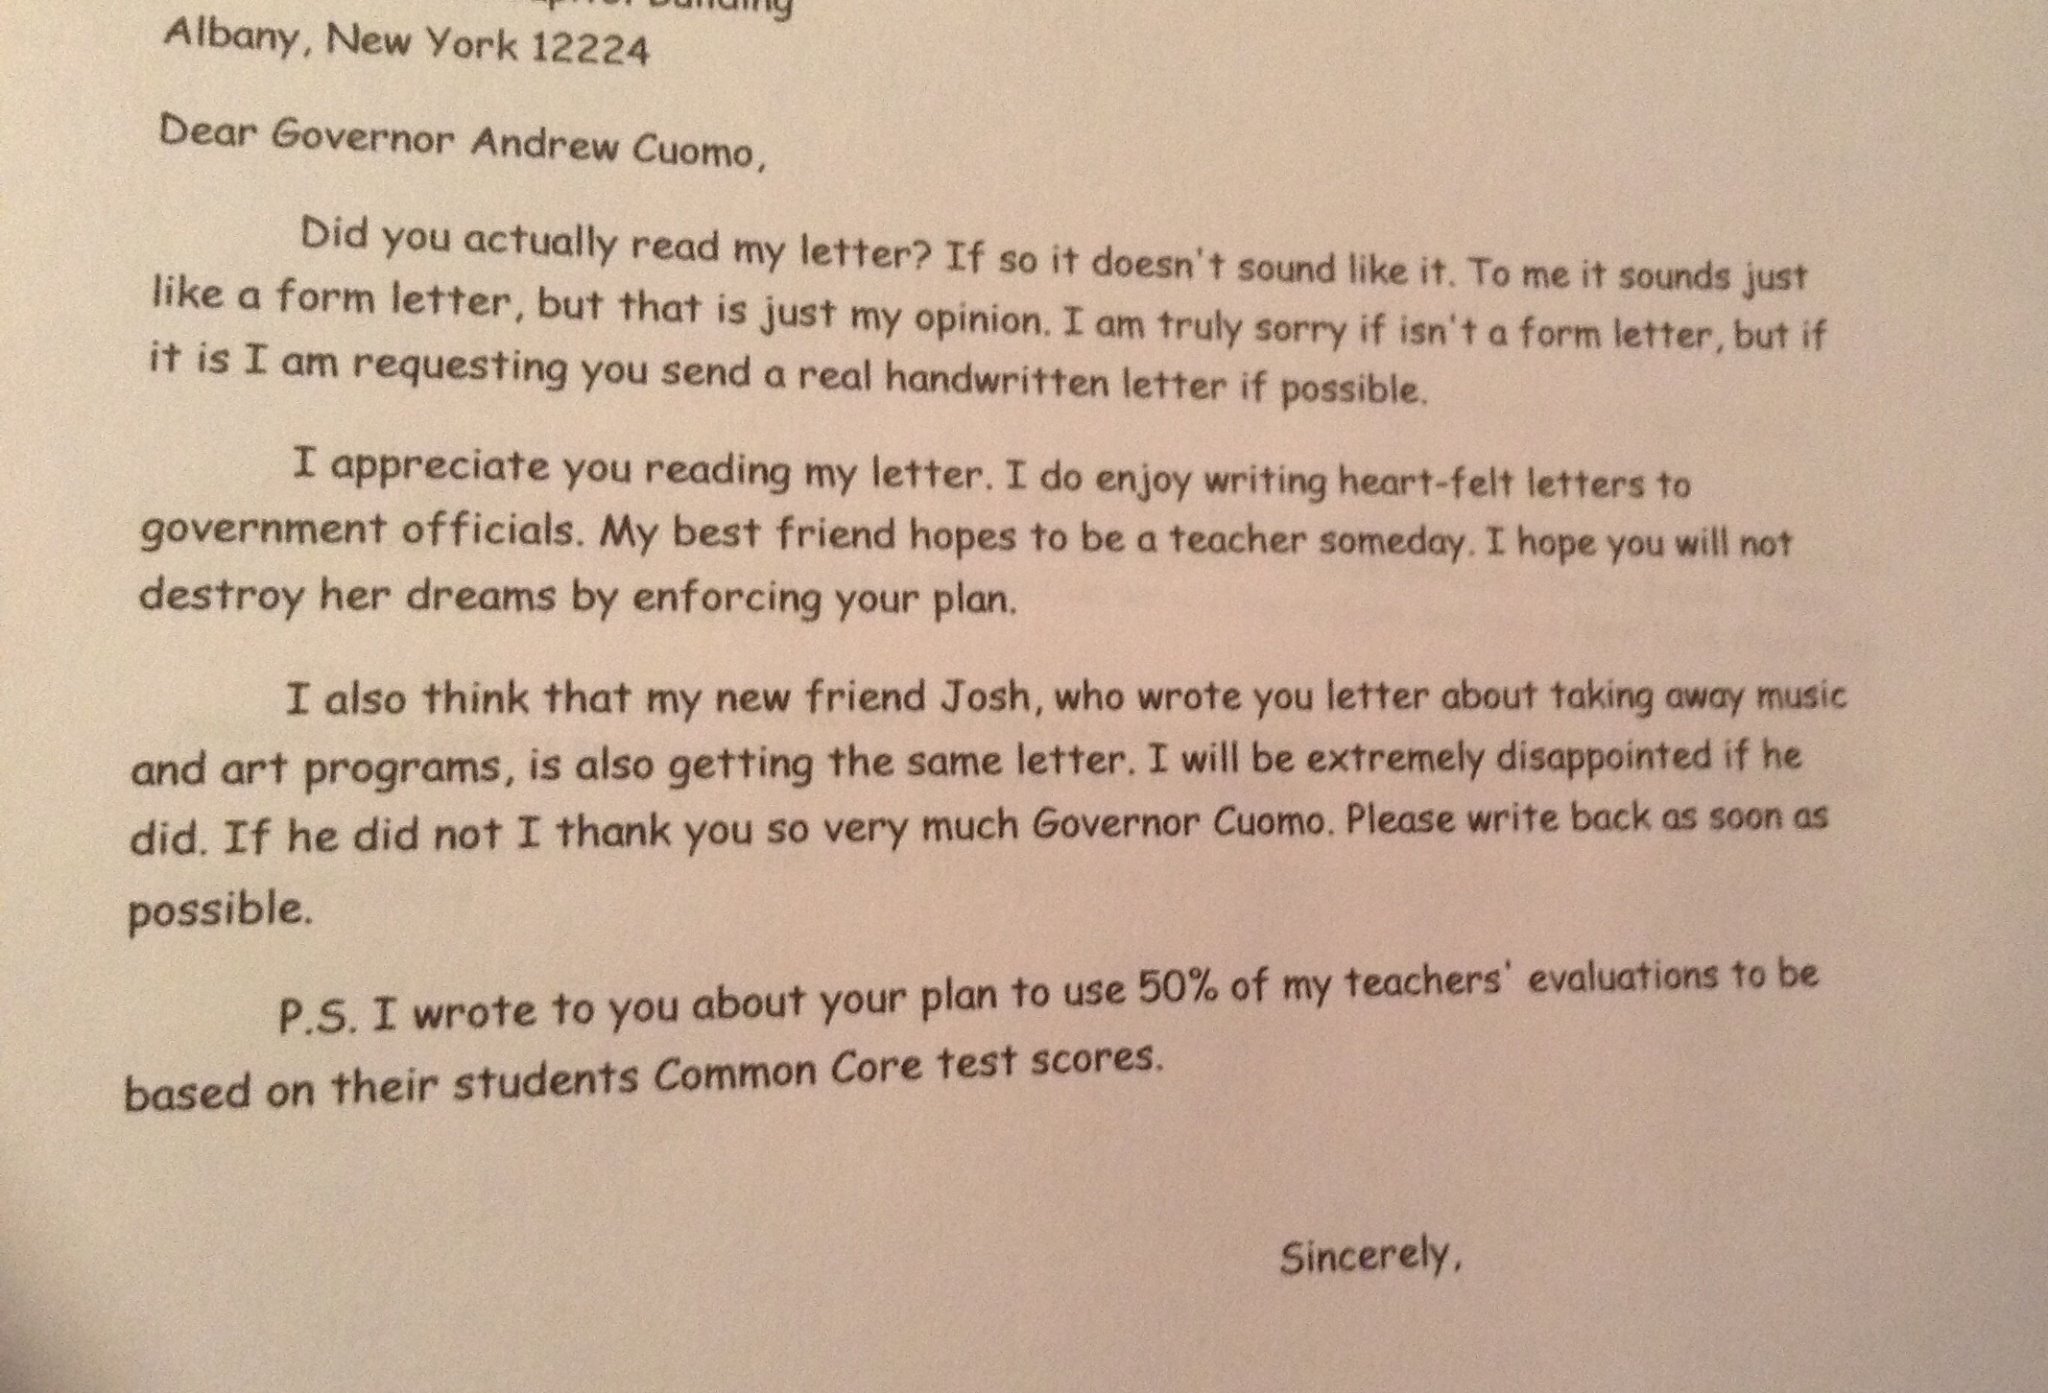 Building
Albany, New York 12224
Dear Governor Andrew Cuomo,
Did you actually read my letter? If so it doesn't sound like it. To me it sounds just
like a form letter, but that is just my opinion. I am truly sorry if isn't a form letter, but if
it is I am requesting you send a real handwritten letter if possible.
I appreciate you reading my letter. I do enjoy writing heart-felt letters to
government officials. My best friend hopes to be a teacher someday. I hope you will not
destroy her dreams by enforcing your plan.
I also think that my new friend Josh, who wrote you letter about taking away music
and art programs, is also getting the same letter. I will be extremely disappointed if he
did. If he did not I thank you so very much Governor Cuomo. Please write back as soon as
possible.
P.S. I wrote to you about your plan to use 50% of my teachers' evaluations to be
based on their students Common Core test scores.
Sincerely,